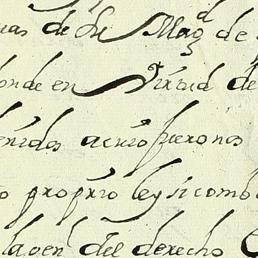 uas de su Magd de
onde en Virtud de
enidos acuio fueron os
o proprio ley si comb
la en del derecho